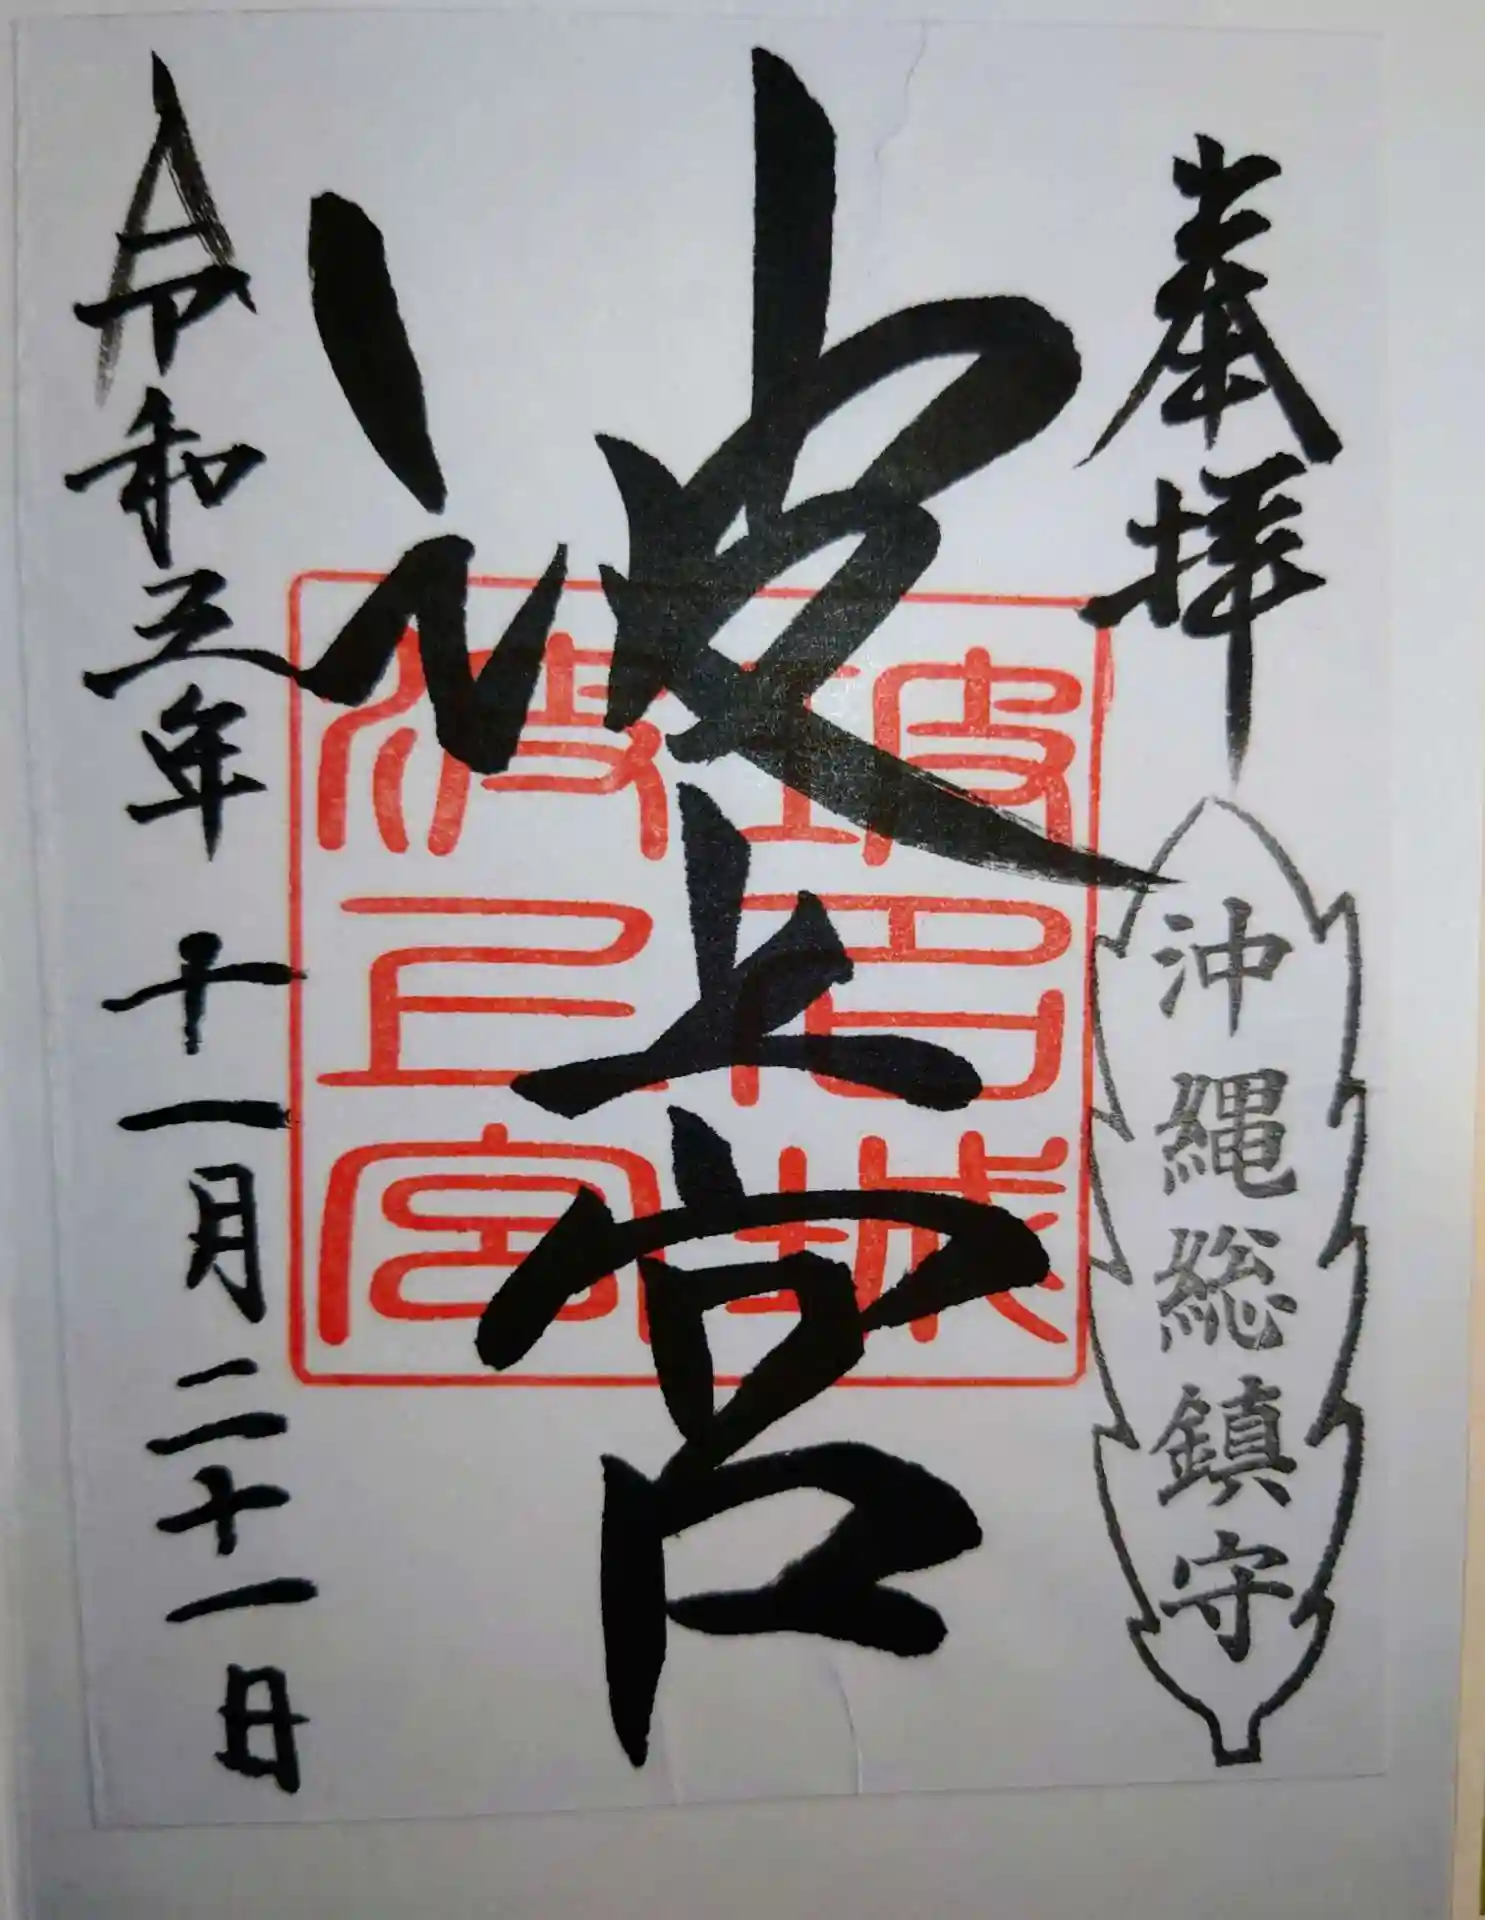 奉拝
沖縄総鎮守
波上宮
琉球
波上宮
令和三年 十一月二十一日